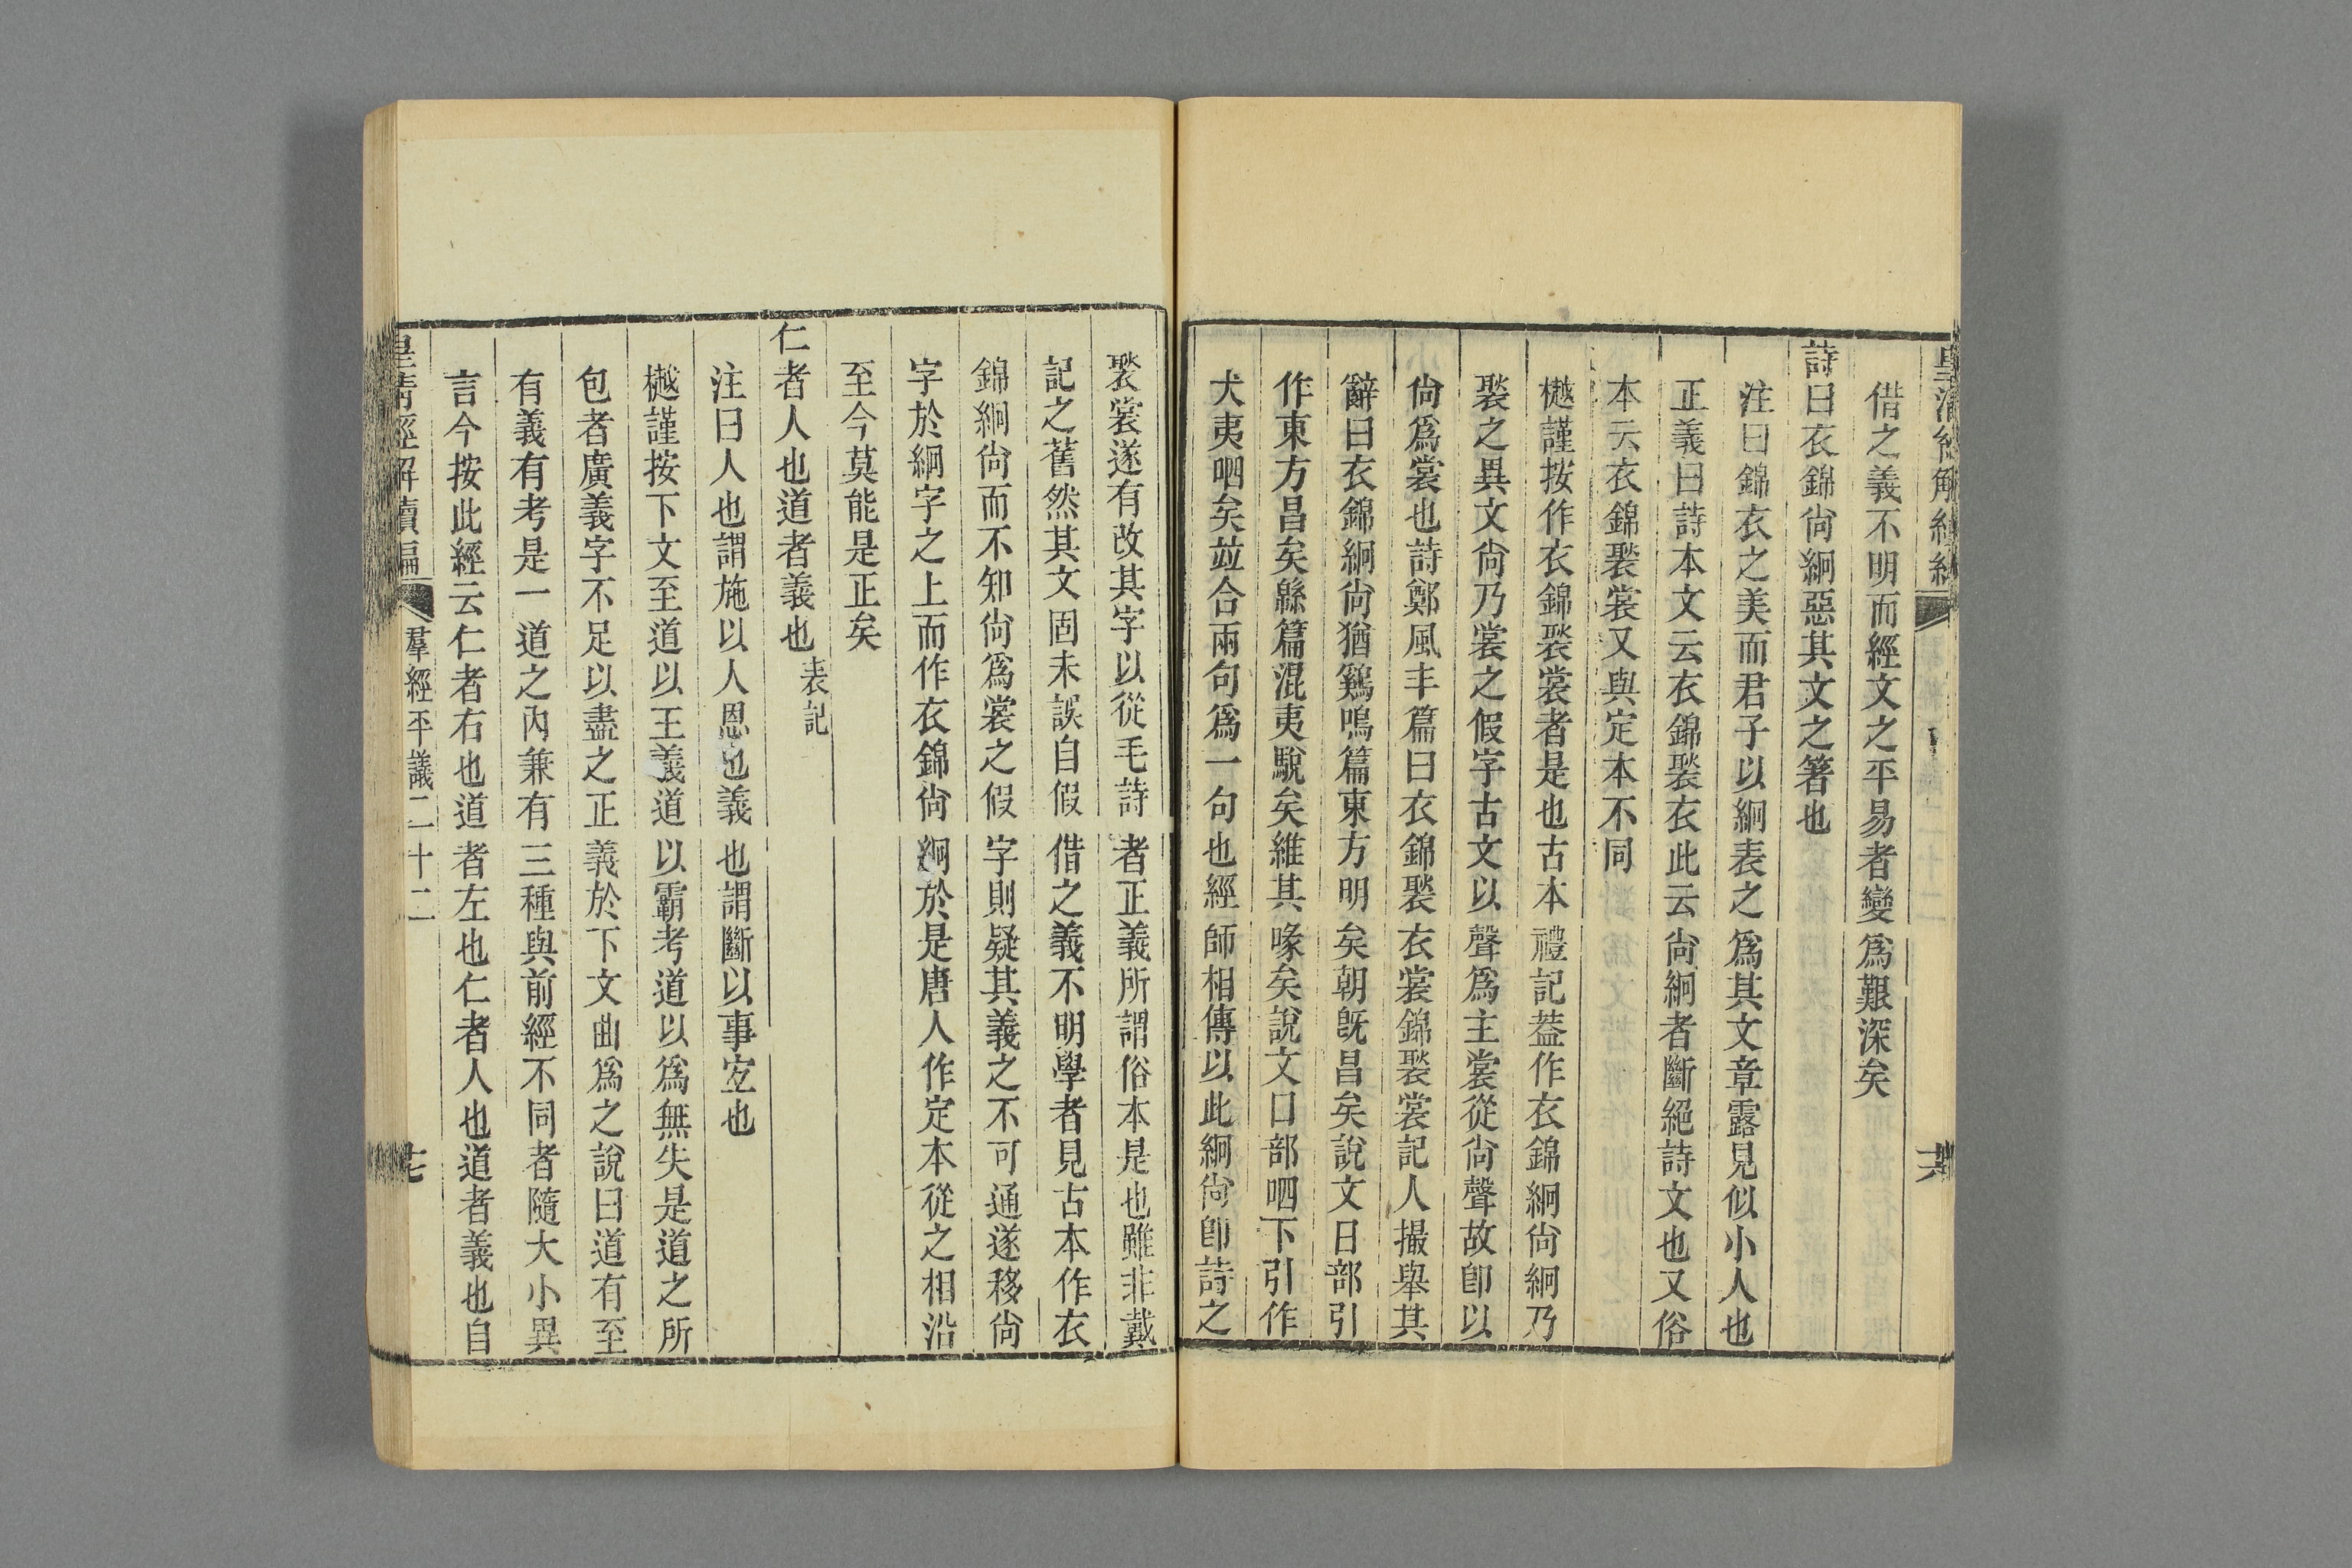 皇清經解續編
十六
借之義不明而經文之平易者變爲艱深矣
詩曰衣錦尙絅惡其文之箸也
注曰錦衣之美而君子以絅表之爲其文章露見似小人也
正義曰詩本文云衣錦褧衣此云尙絅者斷絕詩文也又俗
本云衣錦褧裳又與定本不同
樾謹按作衣錦褧裳者是也古本禮記葢作衣錦絅尙絅乃
褧之異文尙乃裳之假字古文以聲爲主裳從尙聲故卽以
尙爲裳也詩鄭風丰篇曰衣錦褧衣裳錦褧裳記人撮舉其
辭曰衣錦絅尙猶鷄鳴篇東方明矣朝旣昌矣說文日部引
作東方昌矣緜篇混夷駾矣維其喙矣說文口部呬下引作
犬夷呬矣竝合兩句爲一句也經師相傳以此絅尙卽詩之
褧裳遂有改其字以從毛詩者正義所謂俗本是也雖非戴
記之舊然其文固未誤自假借之義不明學者見古本作衣
錦絅尙而不知尙爲裳之假字則疑其義之不可通遂移尙
字於絅字之上而作衣錦尙絅於是唐人作定本從之相沿
至今莫能是正矣
仁者人也道者義也表記
注曰人也謂施以人恩也義也謂斷以事宐也
樾謹按下文至道以王義道以霸考道以爲無失是道之所
包者廣義字不足以盡之正義於下文曲爲之說曰道有至
有義有考是一道之內兼有三種與前經不同者隨大小異
言今按此經云仁者右也道者左也仁者人也道者義也自
皇淸經解續編
羣經平議二十二
十七